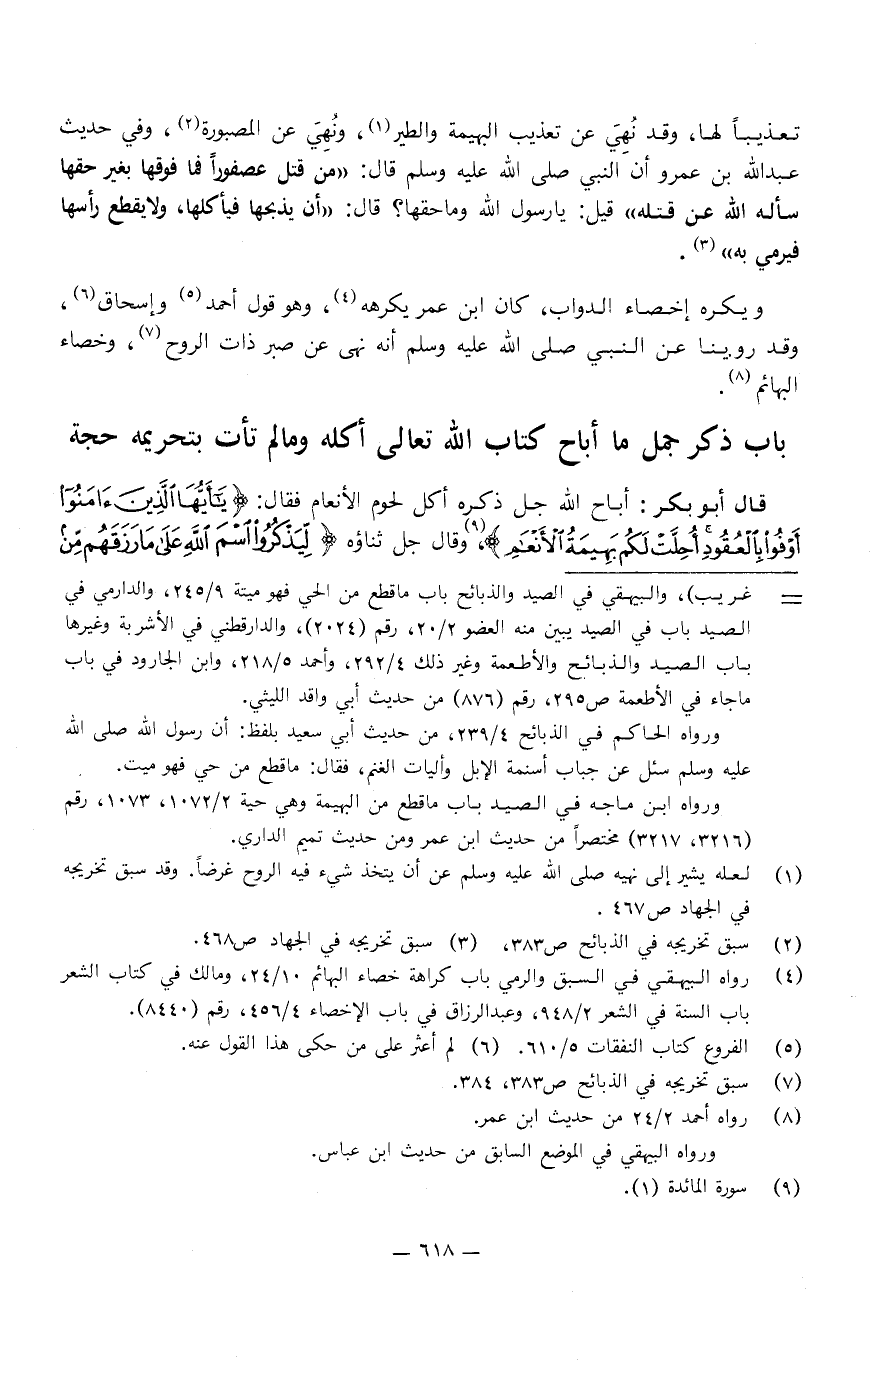 تـعـذيـبـاً لهـا، وقـد نُهِيَ عن تعذيب البهيمة والطير(١)، ونُهِيَ عن المصبورة(٢)، وفي حديث
عبدالله بن عمرو أن النبي صلى الله عليه وسلم قال: «من قتل عصفوراً فما فوقها بغير حقها
سأله الله عن قتله» قيل: يارسول الله وماحقها؟ قال: «أن يذبحها فيأكلها، ولايقطع رأسها
فيرمي به»(٣).
ويكره إخصاء الدواب، كان ابن عمر يكرهه(٤)، وهو قول أحمد(٥) وإسحاق(٦)،
وقد روينا عن النبي صلى الله عليه وسلم أنه نهى عن صبر ذات الروح(٧)، وخصاء
البهائم(٨).
باب ذكر جمل ما أباح كتاب الله تعالى أكله ومالم تأت بتحريمه حجة
قال أبو بكر: أباح الله جل ذكره أكل لحوم الأنعام فقال: ﴿يَٰٓأَيُّهَا ٱلَّذِينَ ءَامَنُوٓا۟
أَوْفُوا۟ بِٱلْعُقُودِ ۚ أُحِلَّتْ لَكُم بَهِيمَةُ ٱلْأَنْعَٰمِ﴾(٩)، وقال جل ثناؤه ﴿لِّيَذْكُرُوا۟ ٱسْمَ ٱللَّهِ عَلَىٰ مَا رَزَقَهُم مِّنۢ
= غريب)، والبيهقي في الصيد والذبائح باب ماقطع من الحي فهو ميتة ٢٤٥/٩، والدارمي في
الصيد باب في الصيد يبين منه العضو ٢٠/٢، رقم (٢٠٢٤)، والدارقطني في الأشربة وغيرها
باب الصيد والذبائح والأطعمة وغير ذلك ٢٩٢/٤، وأحمد ٢١٨/٥، وابن الجارود في باب
ماجاء في الأطعمة ص٢٩٥، رقم (٨٧٦) من حديث أبي واقد الليثي.
ورواه الحاكم في الذبائح ٢٣٩/٤، من حديث أبي سعيد بلفظ: أن رسول الله صلى الله
عليه وسلم سئل عن جباب أسنمة الإبل وأليات الغنم، فقال: ماقطع من حي فهو ميت.
ورواه ابن ماجه في الصيد باب ماقطع من البهيمة وهي حية ١٠٧٢/٢، ١٠٧٣، رقم
(٣٢١٦، ٣٢١٧) مختصراً من حديث ابن عمر ومن حديث تميم الداري.
(١) لعله يشير إلى نهيه صلى الله عليه وسلم عن أن يتخذ شيء فيه الروح غرضاً. وقد سبق تخريجه
في الجهاد ص٤٦٧.
(٢) سبق تخريجه في الذبائح ص٣٨٣، (٣) سبق تخريجه في الجهاد ص٤٦٨.
(٤) رواه البيهقي في السبق والرمي باب كراهة خصاء البهائم ٢٤/١٠، ومالك في كتاب الشعر
باب السنة في الشعر ٩٤٨/٢، وعبدالرزاق في باب الإخصاء ٤٥٦/٤، رقم (٨٤٤٠).
(٥) الفروع كتاب النفقات ٦١٠/٥. (٦) لم أعثر على من حكى هذا القول عنه.
(٧) سبق تخريجه في الذبائح ص٣٨٣، ٣٨٤.
(٨) رواه أحمد ٢٤/٢ من حديث ابن عمر.
ورواه البيهقي في الموضع السابق من حديث ابن عباس.
(٩) سورة المائدة (١).
— ٦١٨ —